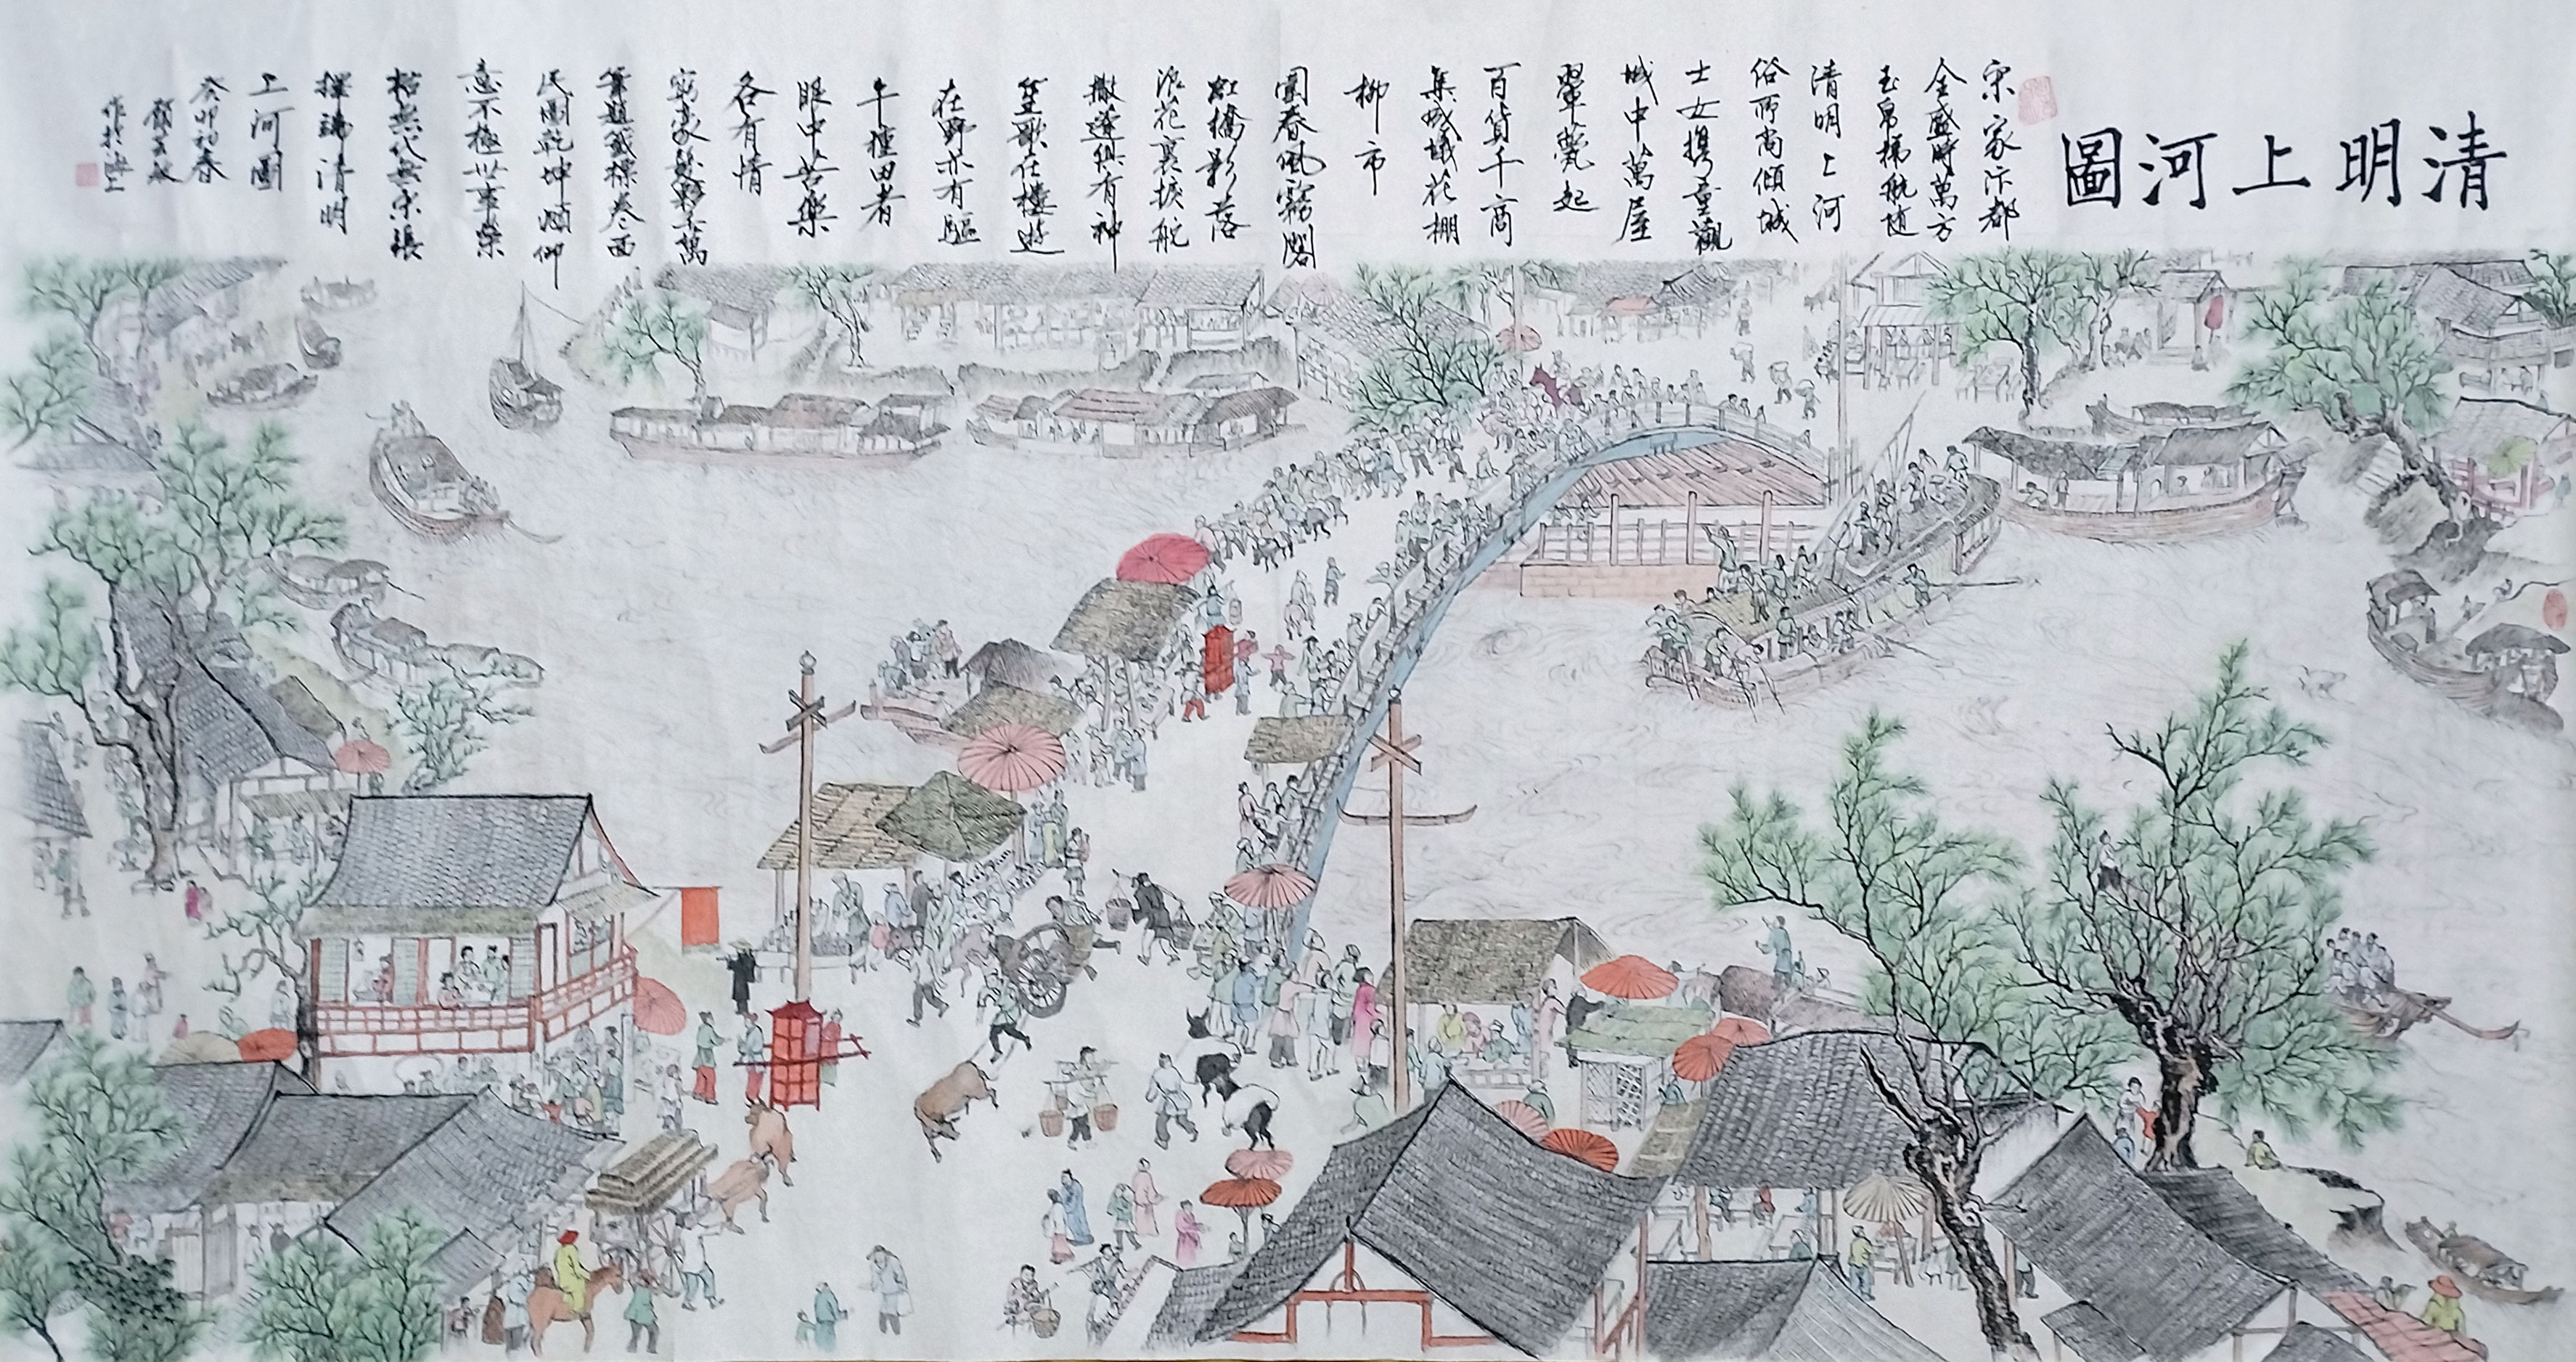 清明上河圖
宋家汴都
全盛時萬方
玉帛梯航随
清明上河
俗所尚傾城
士女携童觀
城中萬屋
翬甍起
百貨千商
集成蟻花棚
柳市
圍春風霧閣
虹橋影落
浪花裏捩舵
撇蓬俱有神
笙歌在樓遊
在野亦有驅
牛種田者
眼中苦樂
各有情
民圖乾坤頫仰
意不極世事榮
枯無代無宋張
擇端清明
上河圖
癸卯初春
作於海上